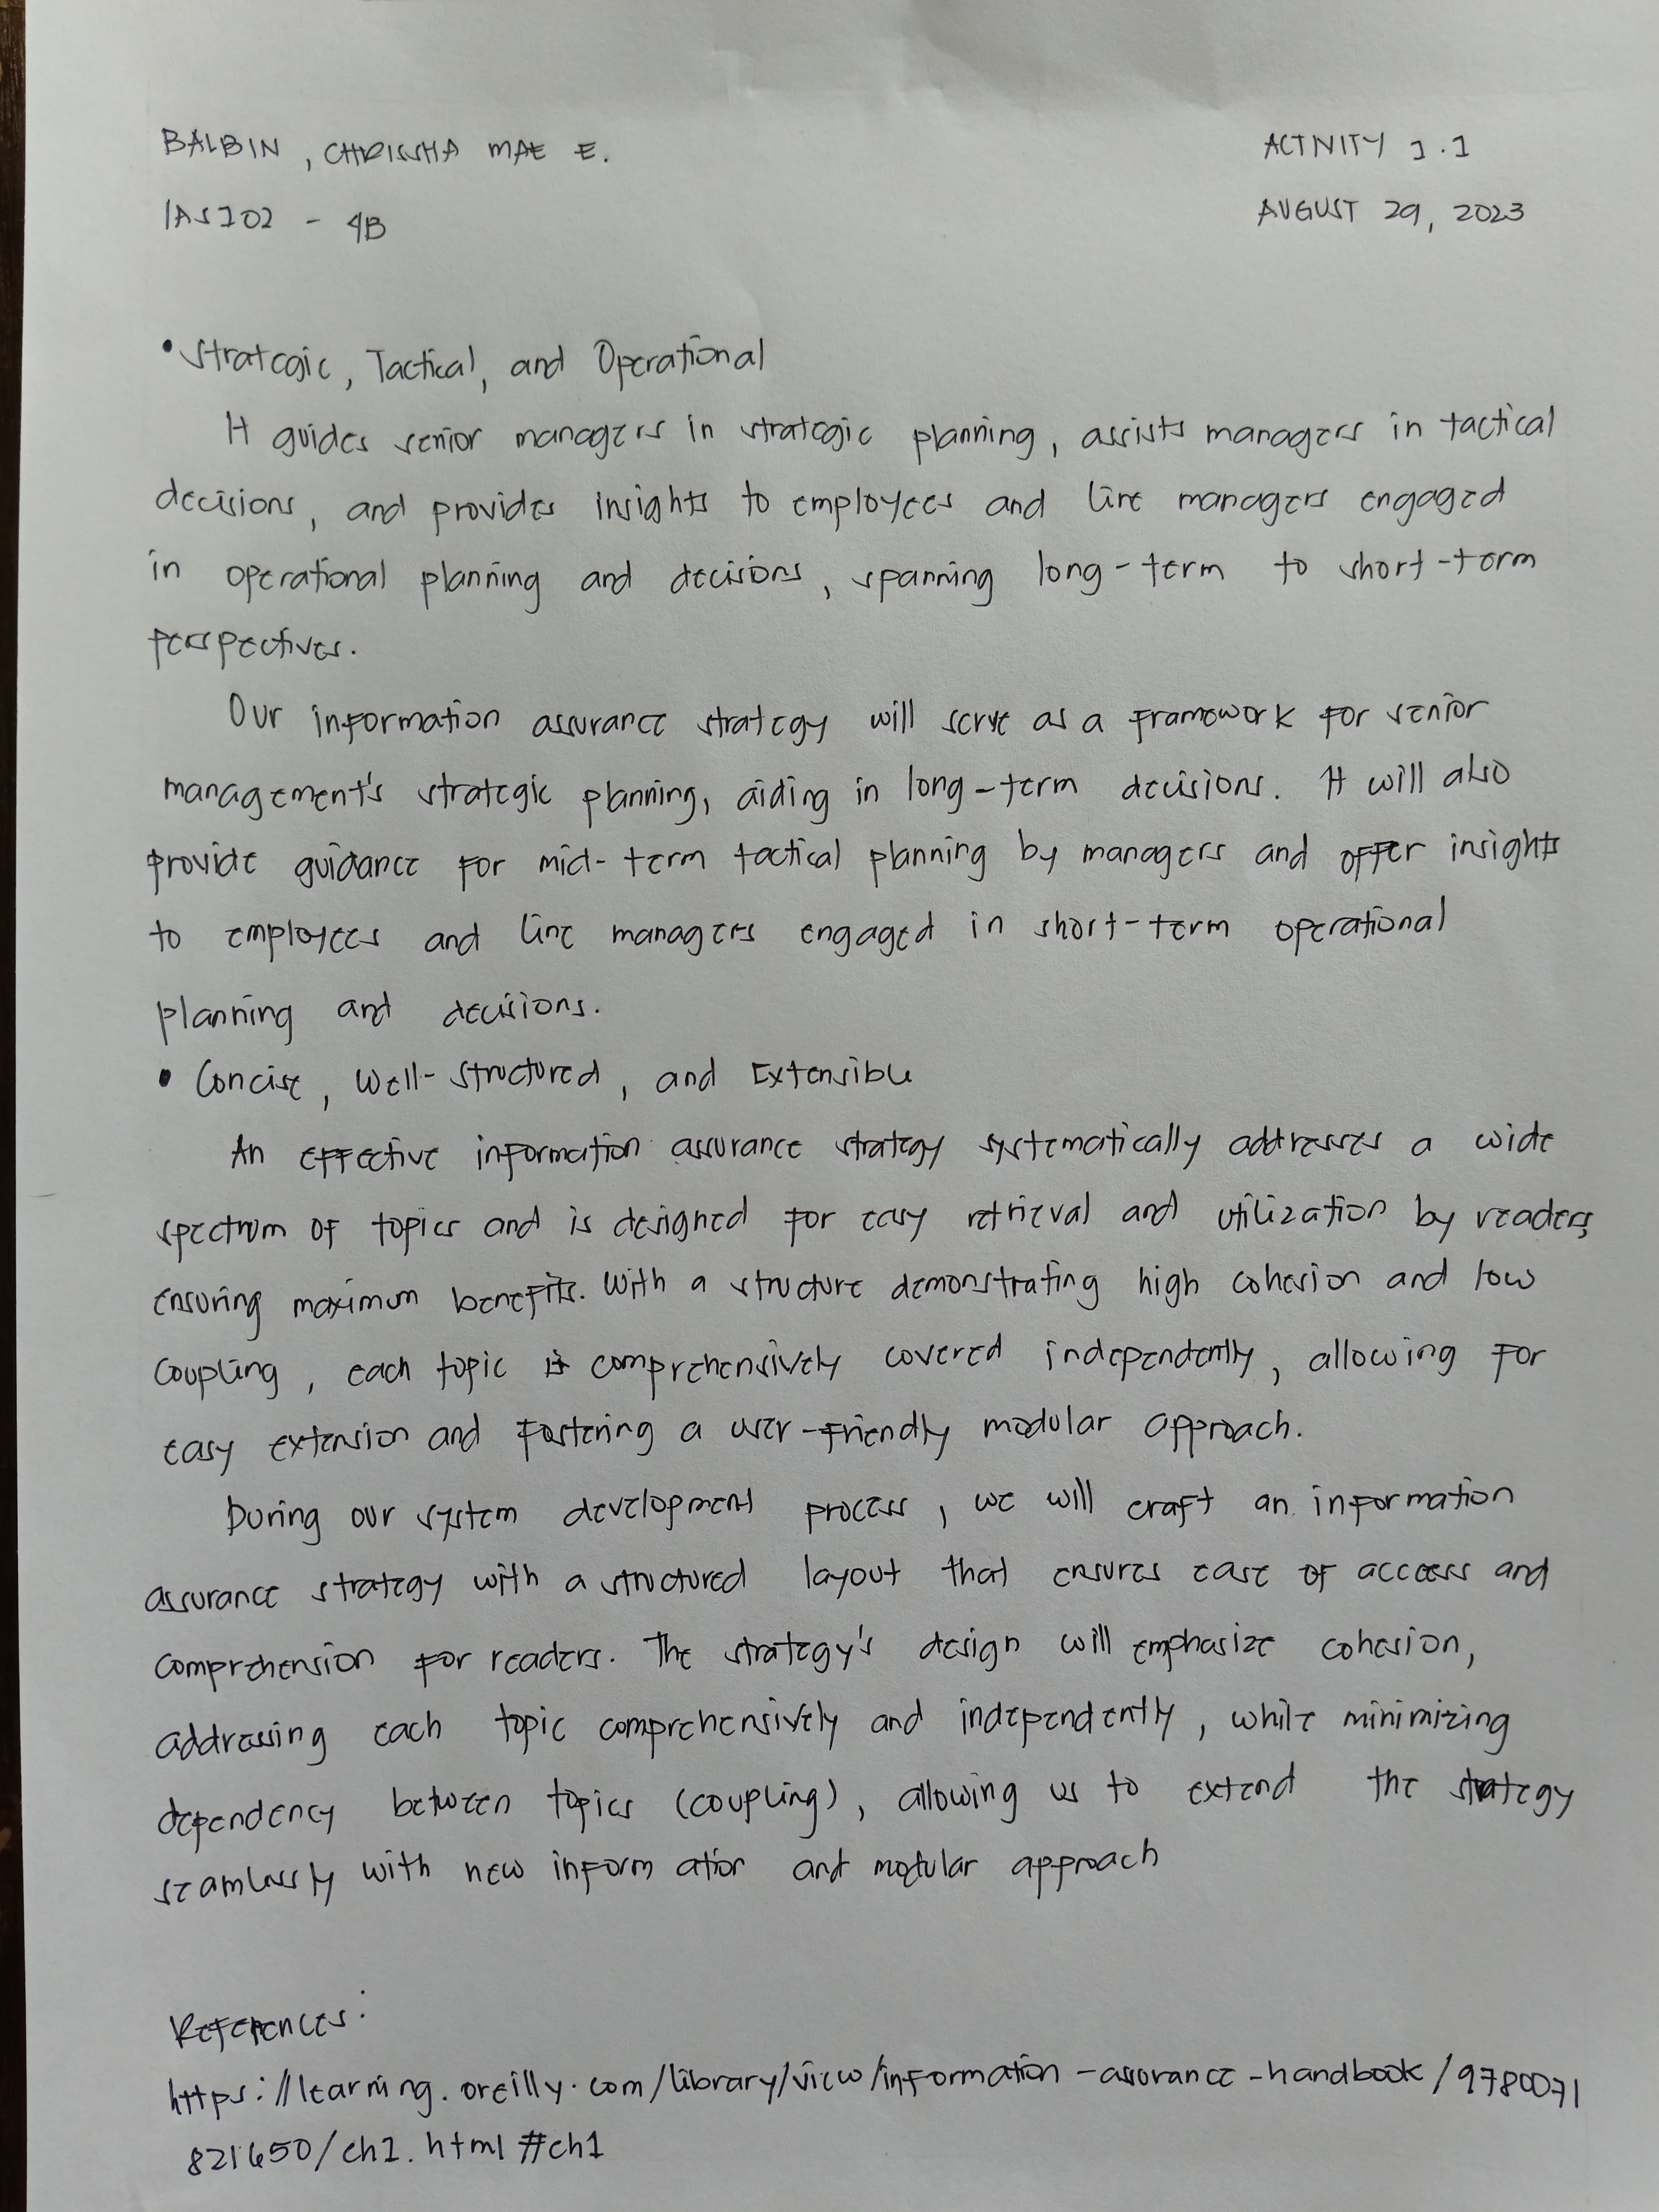 BALBIN, CHRISSHA MAE E.
ACTIVITY 1.1
IAS102 - 4B
AUGUST 29, 2023
• Strategic, Tactical, and Operational
It guides senior managers in strategic planning, assists managers in tactical
decisions, and provides insights to employees and line managers engaged
in operational planning and decisions, spanning long-term to short-term
perspectives.
Our information assurance strategy will serve as a framework for senior
management's strategic planning, aiding in long-term decisions. It will also
provide guidance for mid-term tactical planning by managers and offer insights
to employees and line managers engaged in short-term operational
planning and decisions.
• Concise, Well-Structured, and Extensible
An effective information assurance strategy systematically addresses a wide
spectrum of topics and is designed for easy retrieval and utilization by readers,
ensuring maximum benefits. With a structure demonstrating high cohesion and low
coupling, each topic is comprehensively covered independently, allowing for
easy extension and fostering a user-friendly modular approach.
During our system development process, we will craft an information
assurance strategy with a structured layout that ensures ease of access and
comprehension for readers. The strategy's design will emphasize cohesion,
addressing each topic comprehensively and independently, while minimizing
dependency between topics (coupling), allowing us to extend the strategy
seamlessly with new information and modular approach
References:
https://learning.oreilly.com/library/view/information-assurance-handbook/9780071
821650/ch1.html#ch1